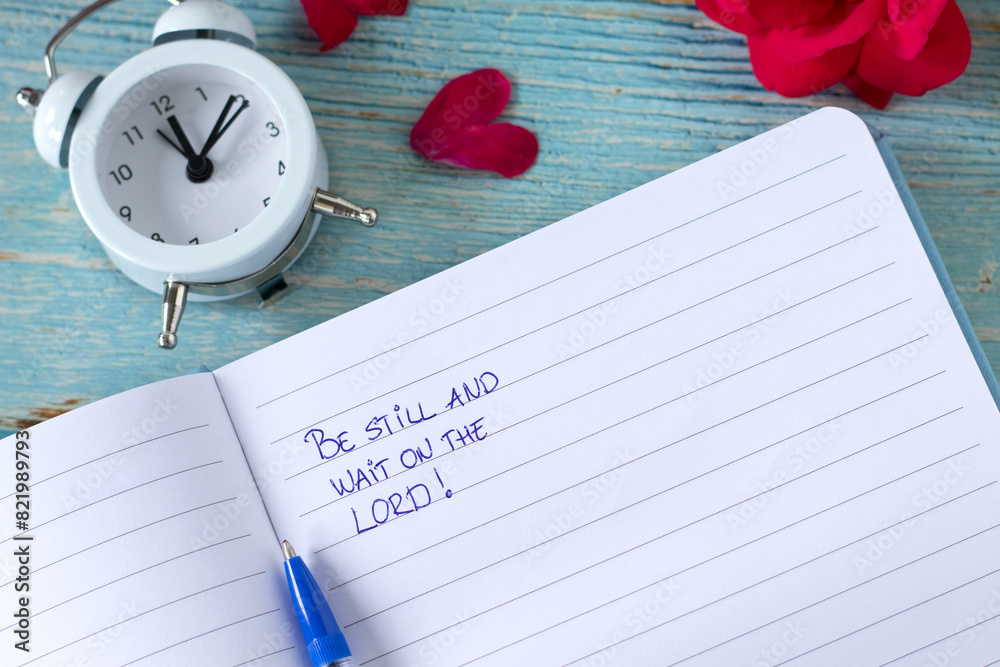 12
1
11
10
3
9
4
8
7
5
BE STILL AND
WAIT ON THE
LORD!
Adobe Stock | #821989793